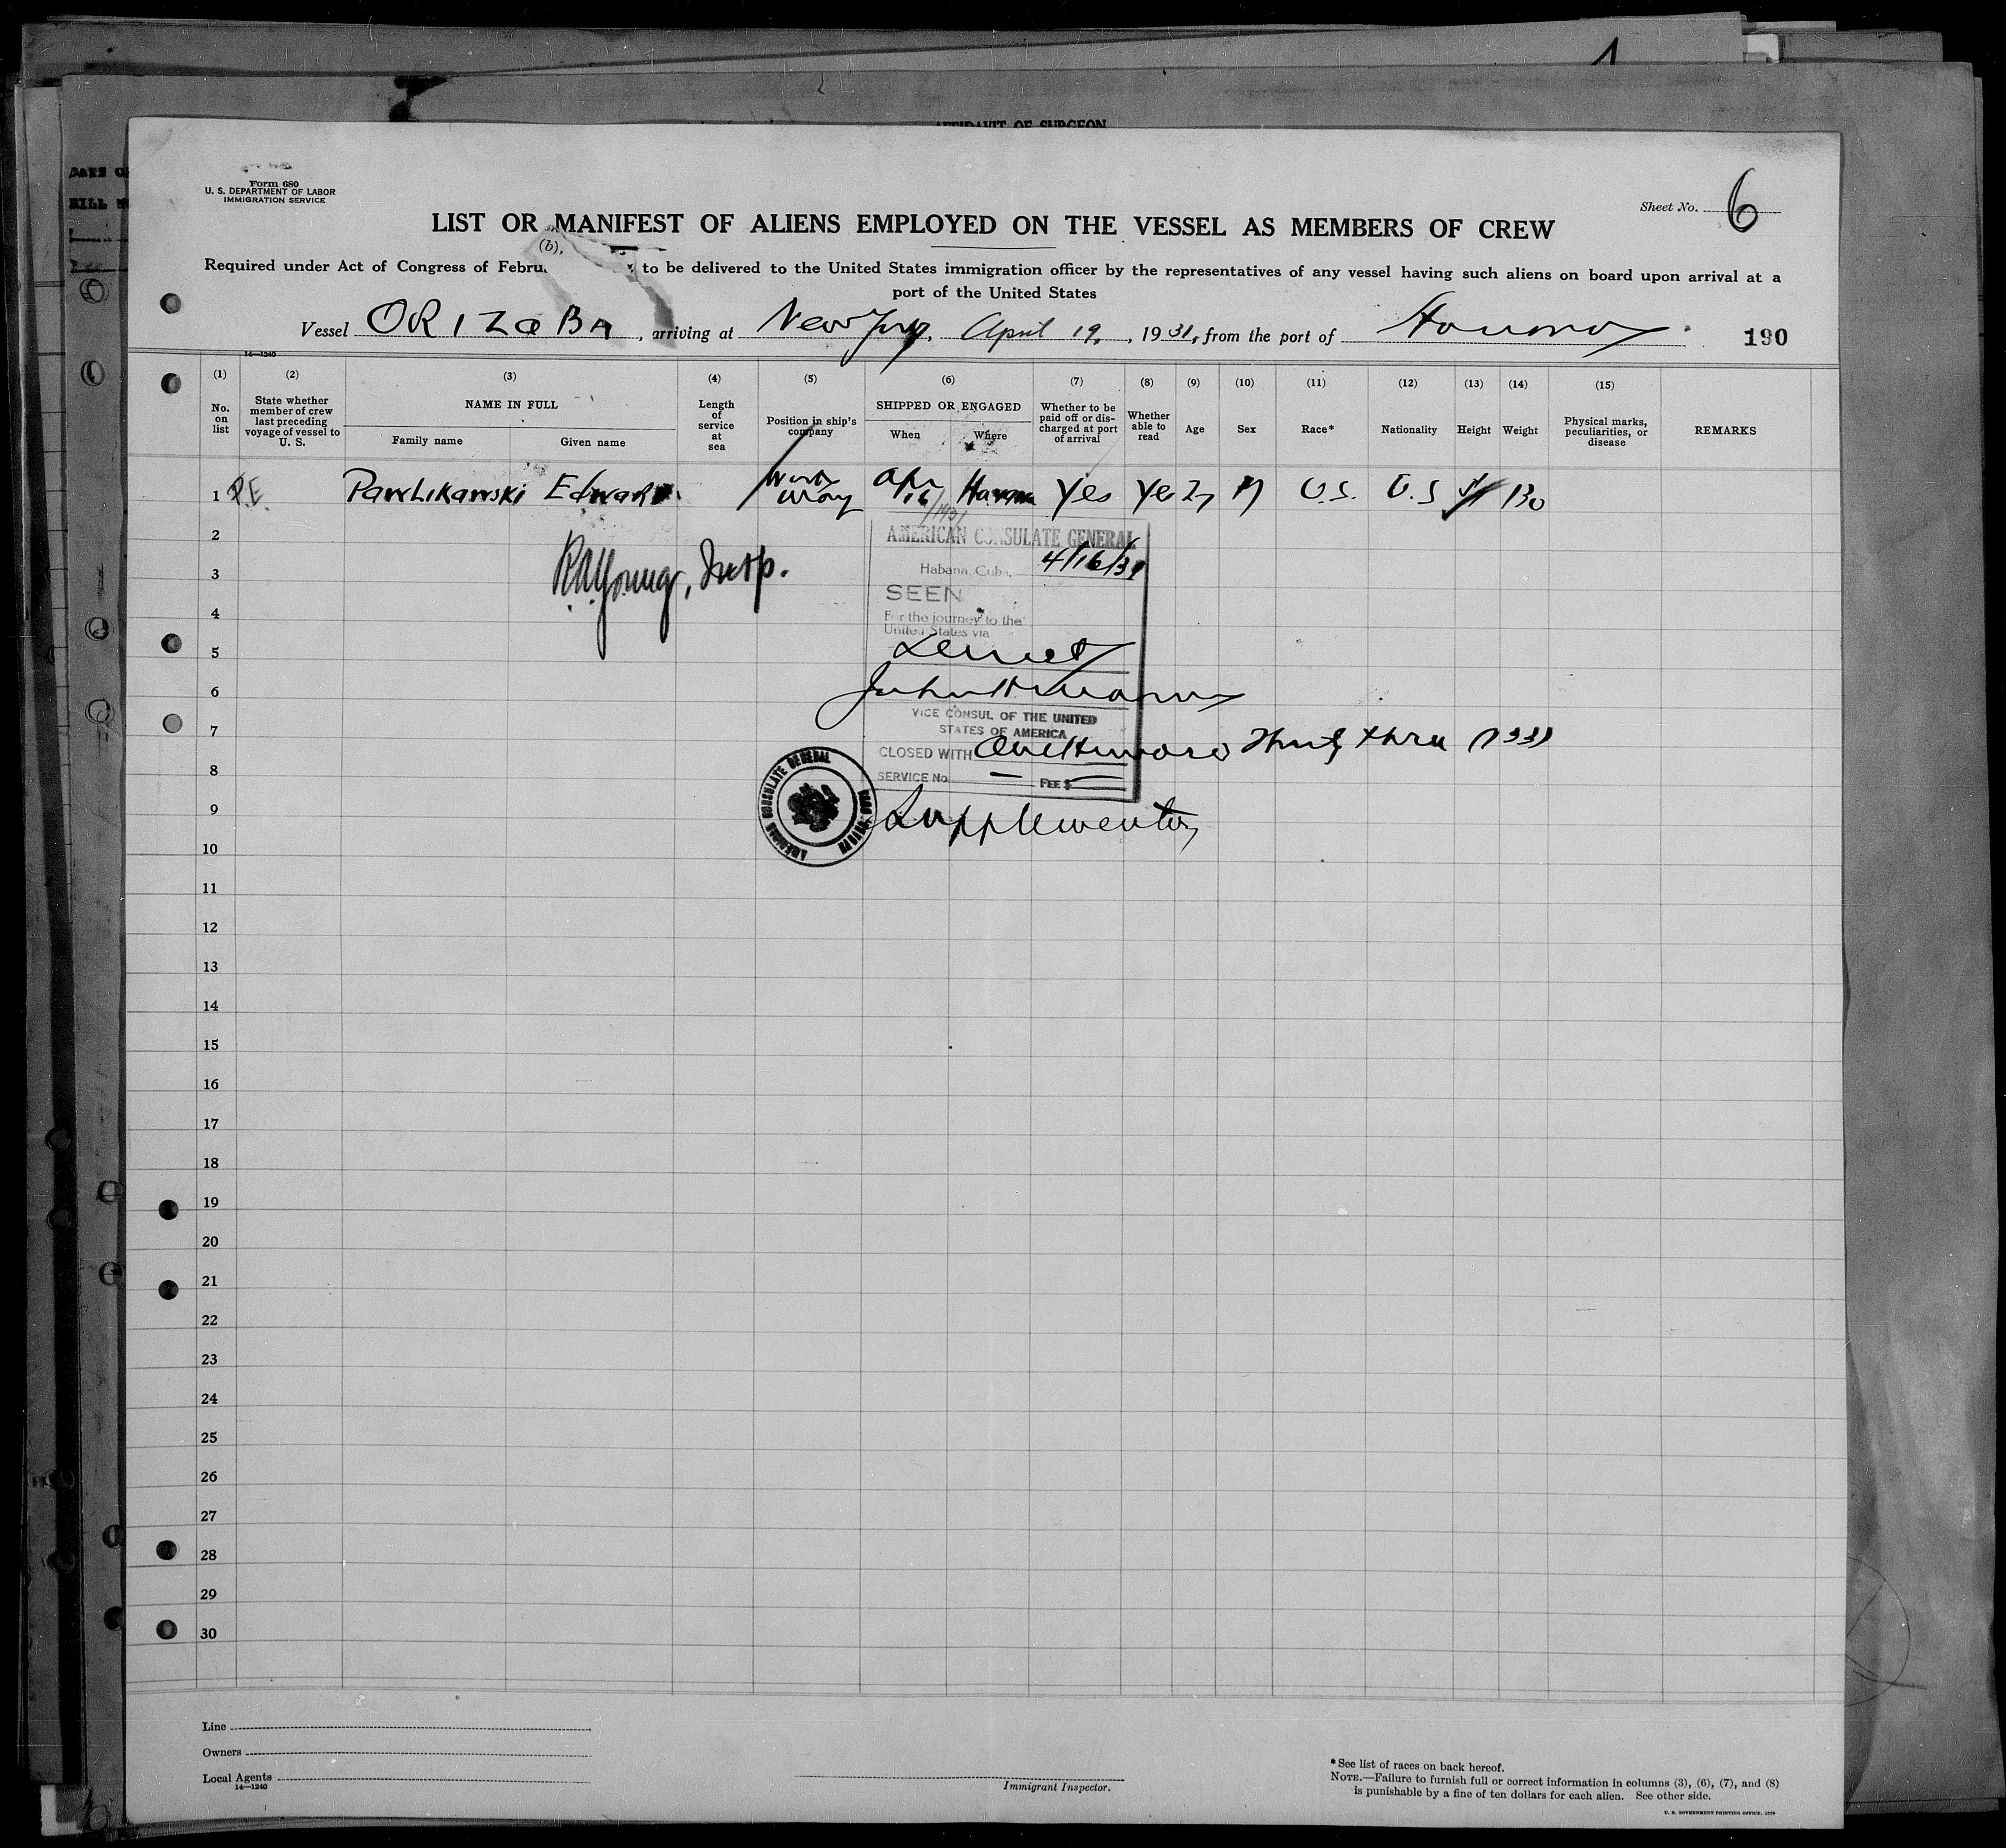 AFFIDAVIT OF SURGEON
Form 680
U. S. DEPARTMENT OF LABOR
IMMIGRATION SERVICE
Sheet No. 6
LIST OR MANIFEST OF ALIENS EMPLOYED ON THE VESSEL AS MEMBERS OF CREW
(b),
Required under Act of Congress of Febru to be delivered to the United States immigration officer by the representatives of any vessel having such aliens on board upon arrival at a
port of the United States
Vessel ORIZaBA, arriving at New York, April 19, 1931, from the port of Havana
190
14—1240
(1) (2) (3) (4) (5) (6) (7) (8) (9) (10) (11) (12) (13) (14) (15)
No. on list
State whether member of crew last preceding voyage of vessel to U. S.
NAME IN FULL
Family name
Given name
Length of service at sea
Position in ship's company
SHIPPED OR ENGAGED
When
Where
Whether to be paid off or discharged at port of arrival
Whether able to read
Age
Sex
Race*
Nationality
Height
Weight
Physical marks, peculiarities, or disease
REMARKS
1 P.E. Pawlikawski Edward Work away Apr 16/1931 Havana Yes Yes 27 M U.S. U.S 130
2
AMERICAN CONSULATE GENERAL
3
RAYoung, Insp.
Habana, Cuba, 4/16/31
SEEN
4
For the journey to the
United States via
5
Direct
6
VICE CONSUL OF THE UNITED
7
STATES OF AMERICA
CLOSED WITH One Hundred Thirty three (133)
8
SERVICE No. — FEE $ —
AMERICAN CONSULATE GENERAL HABANA, CUBA
9
Supplementary
10
11
12
13
14
15
16
17
18
19
20
21
22
23
24
25
26
27
28
29
30
Line
Owners
Local Agents
14—1240
Immigrant Inspector.
*See list of races on back hereof.
NOTE.—Failure to furnish full or correct information in columns (3), (6), (7), and (8)
is punishable by a fine of ten dollars for each alien. See other side.
U. S. GOVERNMENT PRINTING OFFICE: 1929